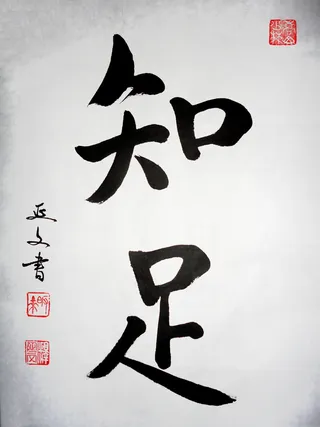 知足
延文書